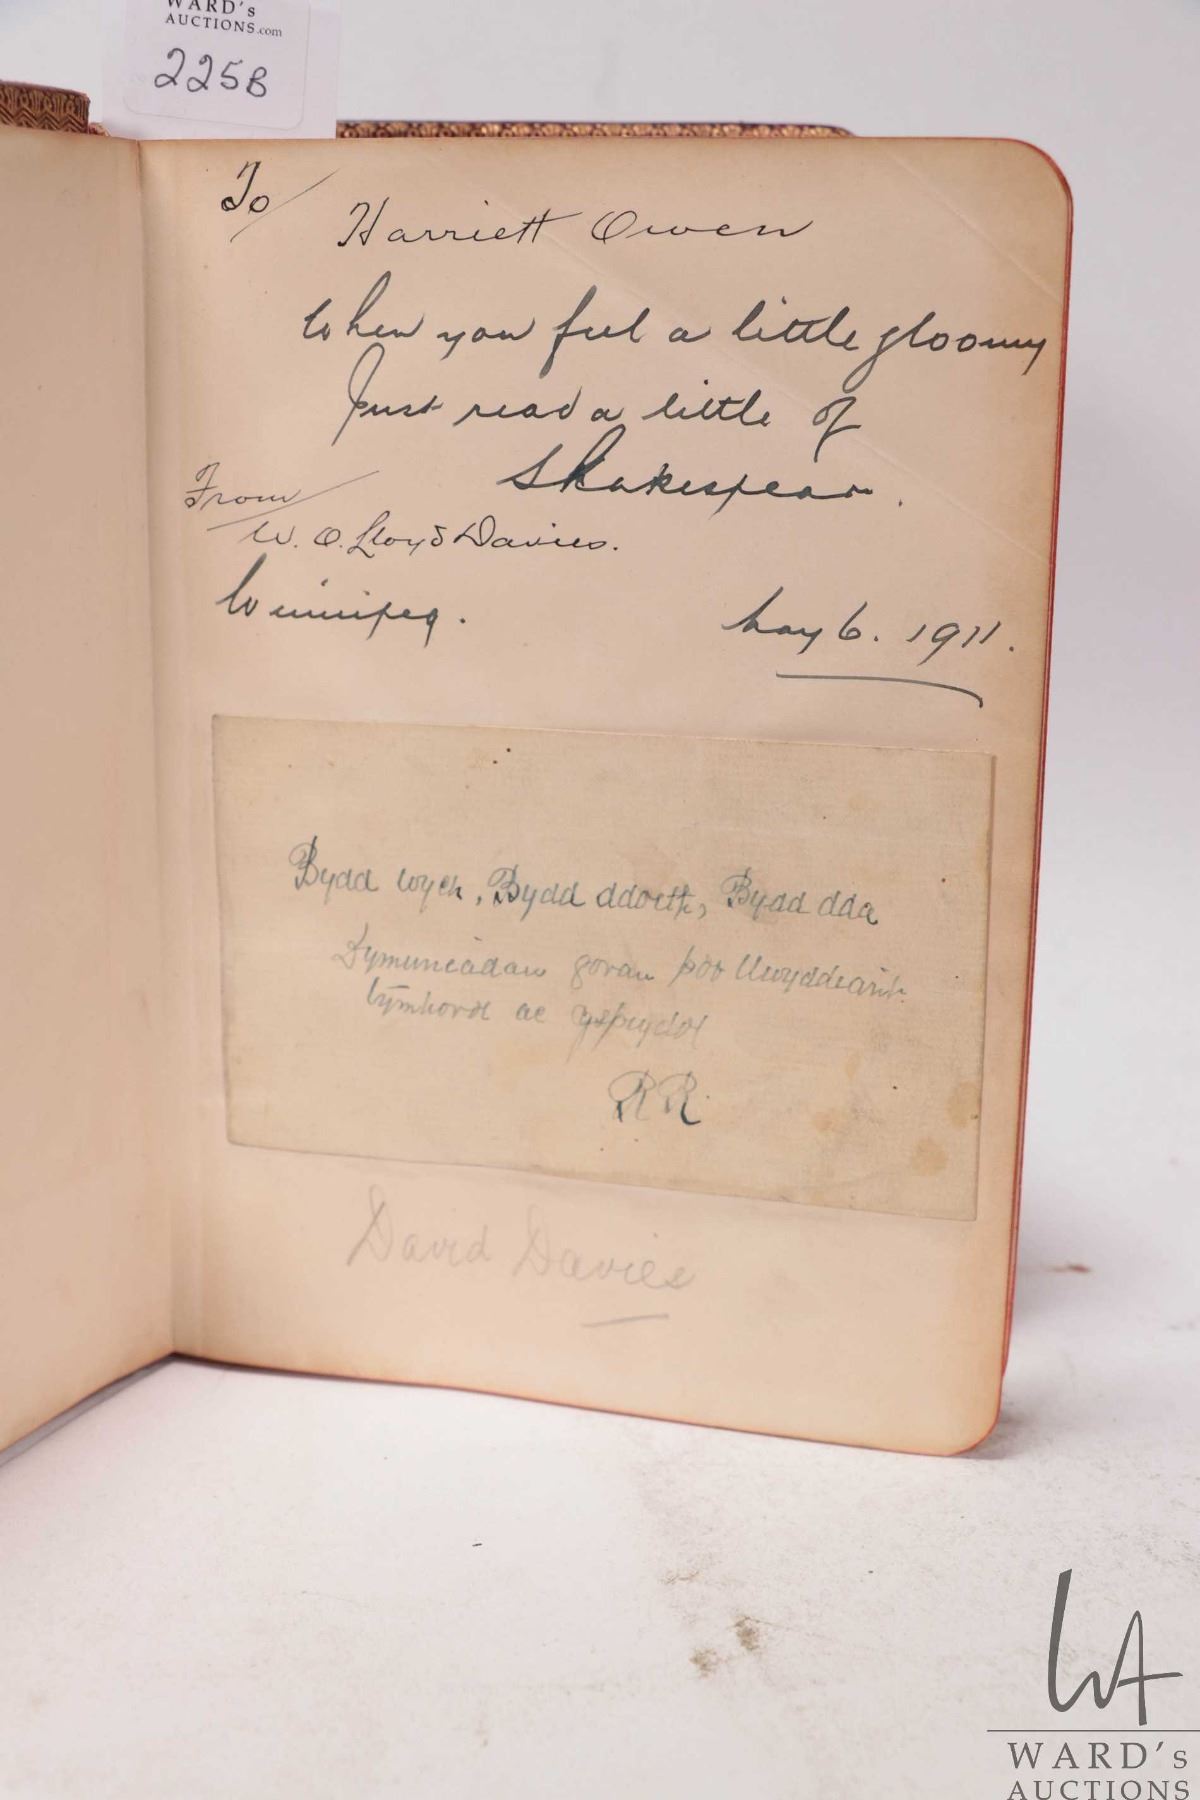 WARD's
AUCTIONS.com
225B
To/
Harriett Owen
When you feel a little gloomy
Just read a little of
Shakespear.
From/
W. O. Lloyd Davies.
Winnipeg.
May 6. 1911.
Bydd wych, Bydd ddoeth, Bydd dda
Dymuniadau gorau pob llwyddiant
tymhorol ac ysprydol
RR.
David Davies
WA
WARD's
AUCTIONS